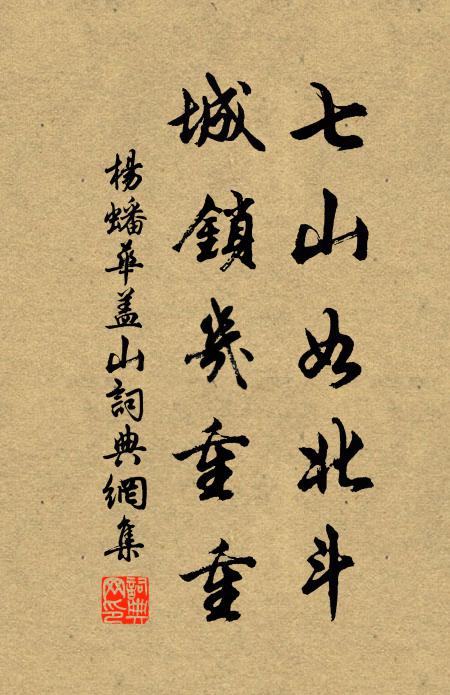 七山如北斗
城鎖幾重重
楊蟠華盖山詞典網集
詞典
网印